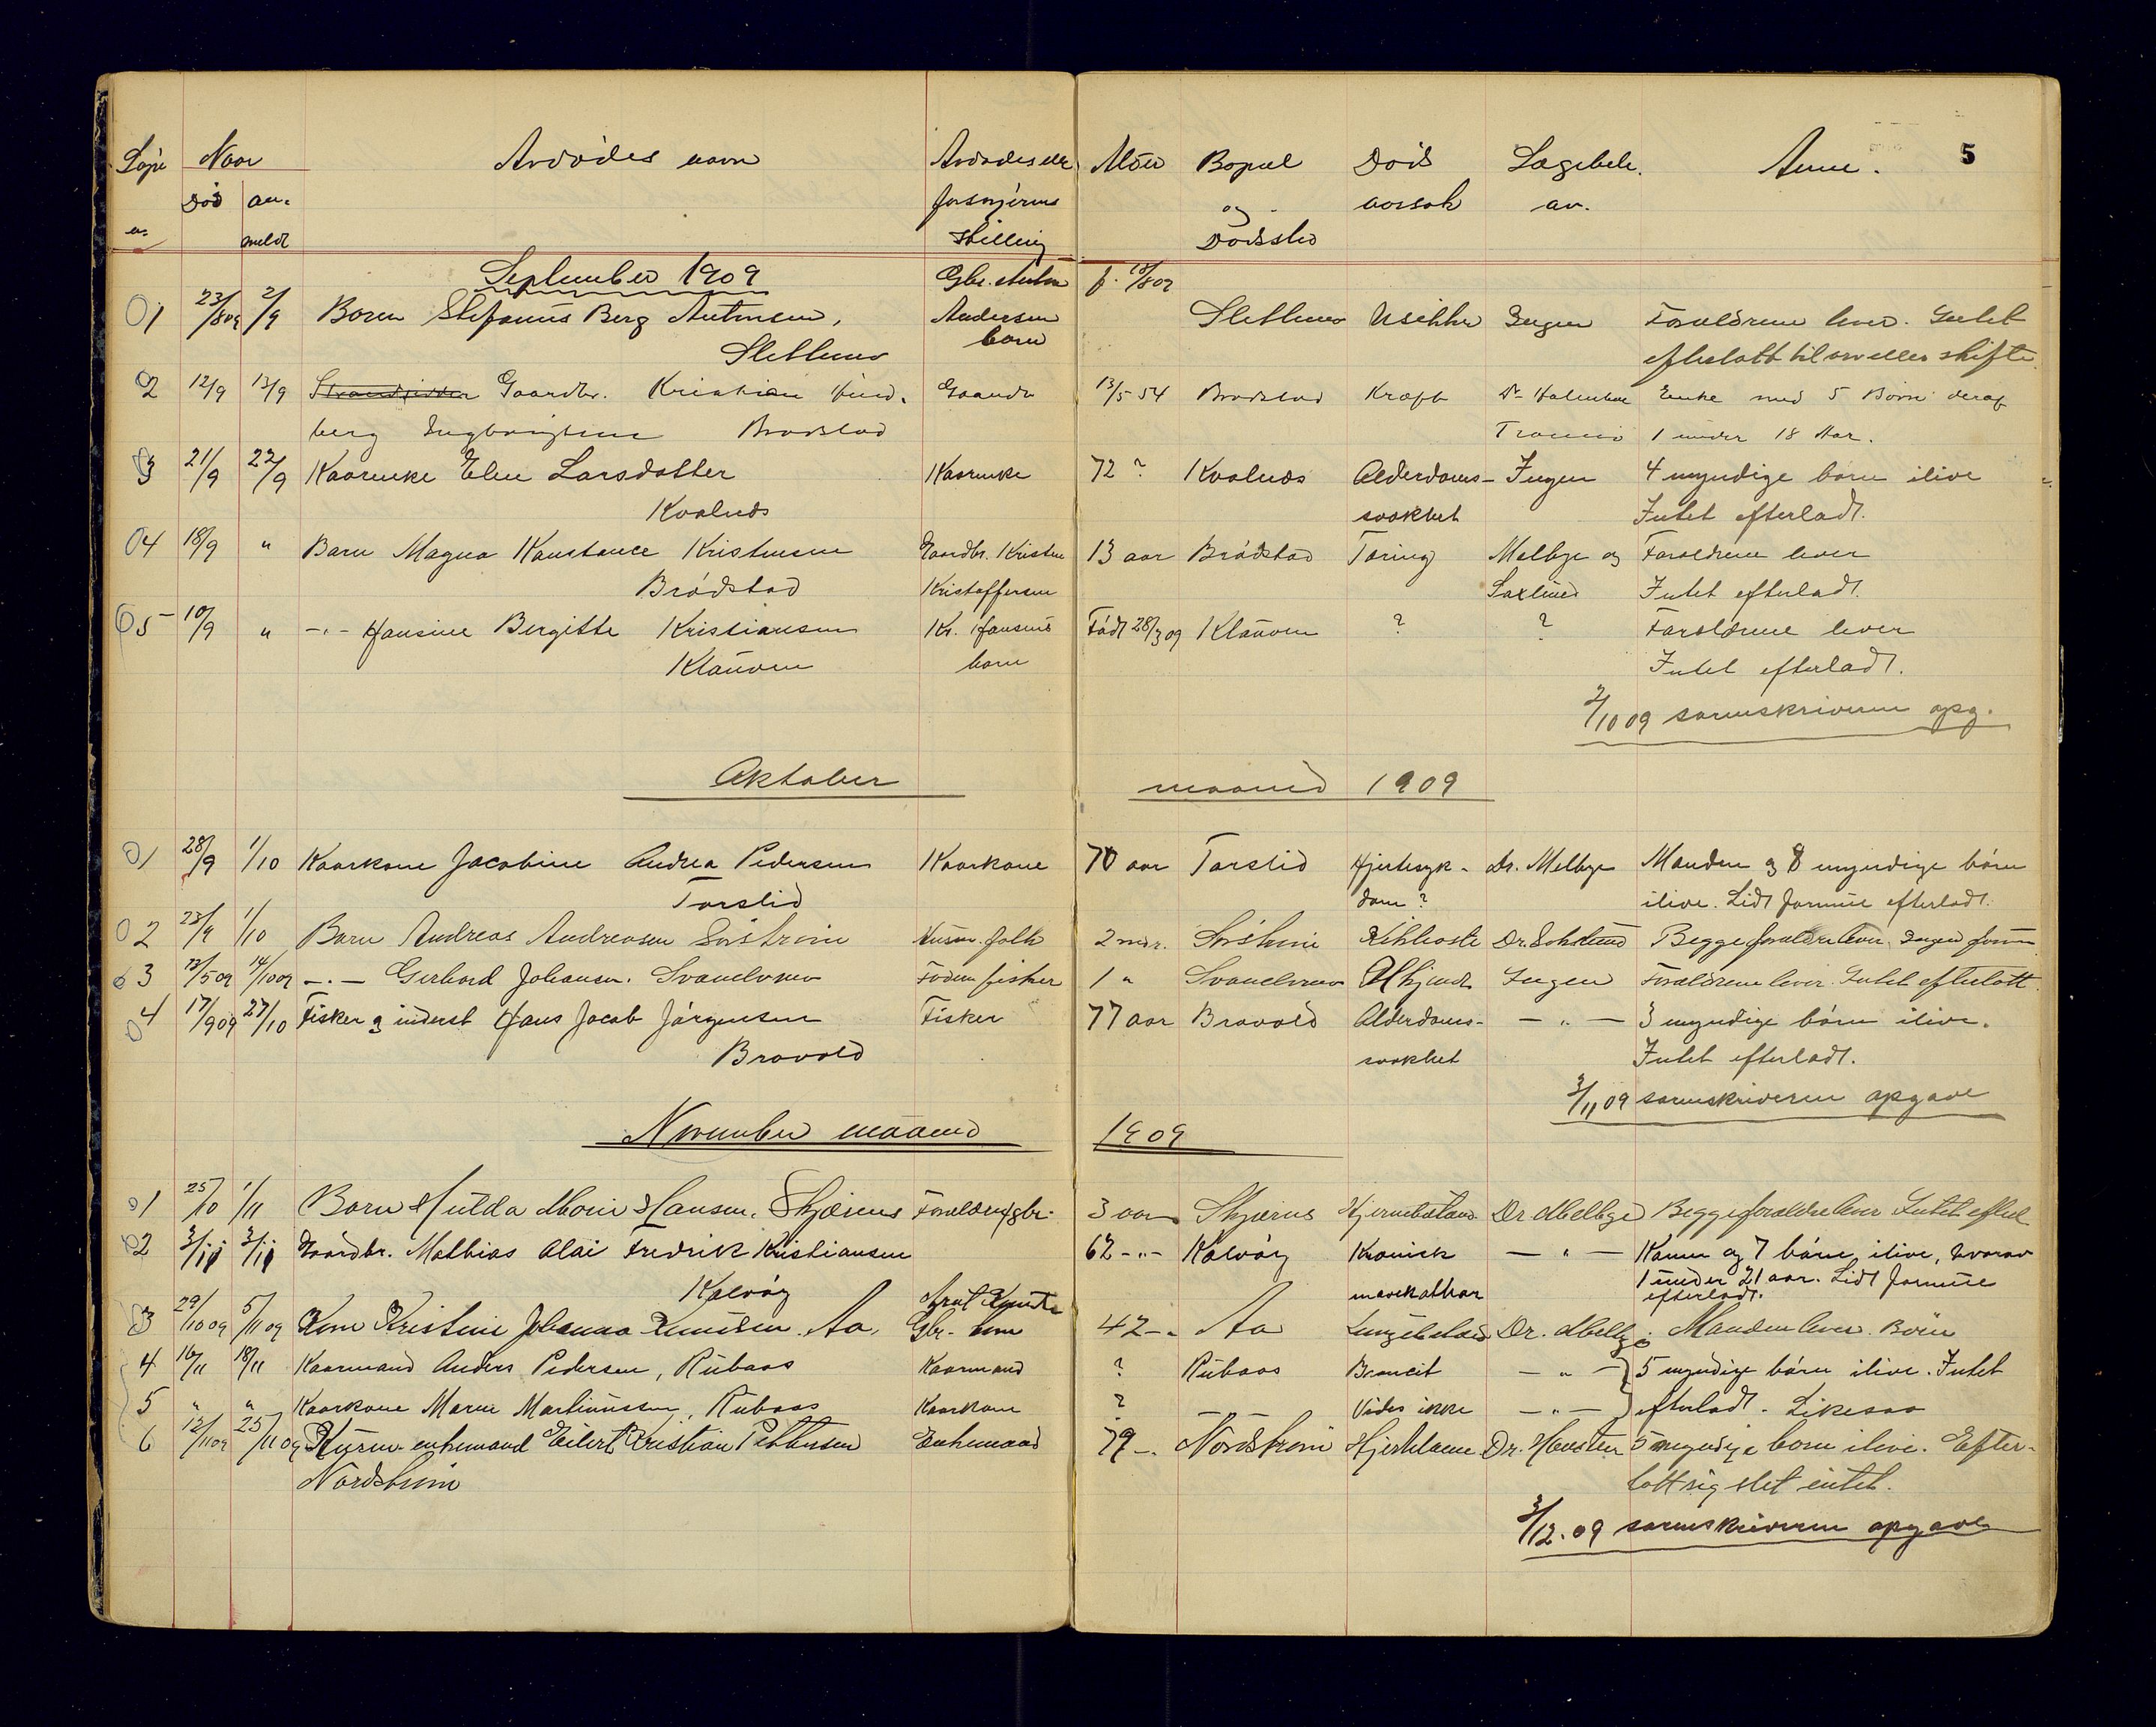 5
Løpe Naar Avdødes navn Avdødes eller Alder Bopæl Døds Lægebeh. Anm.
Død an- forsørjerens og aarsak av.
n. meldt stilling Dødssted
September 1909 Gbr. f. 18/8 09
01 23/8 09 2/9 Barn Stefanus Berg Antonsen, Andersen Slettenes Usikker Ingen Forældrene lever. Intet
Slettenes barn efterlatt til arv eller skifte.
02 12/9 13/9 Gaardbr. Kristian Lind- Gaardbr 13/5 54 Brødstad Kræft Enke med 5 Børn deraf
berg Ingbrigtsen Brødstad Tromsø 1 under 18 Aar.
03 21/9 22/9 Kaarenke Elen Larsdatter Kaarenke 72 ? Kvalnes Alderdoms- Ingen 4 myndige børn ilive
Kvalnes svakhet Intet efterladt.
04 18/9 " Barn Magna Konstance Kristensen Gaardbr. Kristen 13 aar Brødstad Tæring Melbye og Forældrene lever
Brødstad Kristoffersen Intet efterladt.
05 10/9 " -"- Hansine Bergitte Kristiansen Kr. Hansens Født 28/3 09 Klauven ? ? Forældrene lever
Klauven barn Intet efterladt.
2/10 09 sorenskriveren opg.
Oktober maaned 1909
01 28/9 1/10 Kaarkone Jacobine Andrea Pedersen Kaarkone 70 aar Torslid Hjertesyk- Dr. Melbye Manden og 8 myndige børn
Torslid dom? ilive. Lidt formue efterladt.
02 23/9 1/10 Barn Andreas Andreasen Sørstrøm Husm. folk 2 mdr. Sørstrøm Kikhoste Begge forældre lever. Ingen form
03 13/5 09 14/10 09 -"- Gerhard Johansen. Svanelvmo Foderm fisker 1 " Svanelvmo Ukjendt Ingen Forældrene lever. Intet efterlatt
04 17/9 09 27/10 Fisker og inderst Hans Jacob Jørgensen Fisker 77 aar Bravold Alderdoms- -"- 3 myndige børn ilive.
Bravold svakhet Intet efterladt.
3/11 09 sorenskriveren opgave
November maaned 1909
01 25/10 1/11 Barn Hulda Marie Hansen. Skjærnes Forældre gbr. 3 aar Skjærnes Dr. Melbye Begge forældre lever Intet efterl
02 3/11 3/11 Gaardbr. Mathias Olai Fredrik Kristiansen 62 -"- Kalvåg Kronisk -"- Kone og 7 børn ilive, hvorav
Kalvåg mavekathar 1 under 21 aar. Lidt formue
efterladt.
03 29/10 09 5/11 09 Kone Kristine Johanna Knudsen. Aa, Gbr. kone 42 -" Aa Dr. Melbye Manden lever. Børn
4 16/11 18/11 Kaarmand Anders Pedersen, Rubaas Kaarmand ? Rubaas Broncit -"- 5 myndige børn ilive. Intet
5 " " Kaarkone Maren Martinussen, Rubaas Kaarkone ? -"- Vides ikke -"- efterladt. Likesaa
6 12/11 09 25/11 09 enkemand Eilert Kristian Pettersen Enkemand 79 -" Nordstrøm Hjertelamm Dr. 5 myndige børn ilive. Efter-
Nordstrøm latt sig slet intet.
3/12.09 sorenskriveren opgave